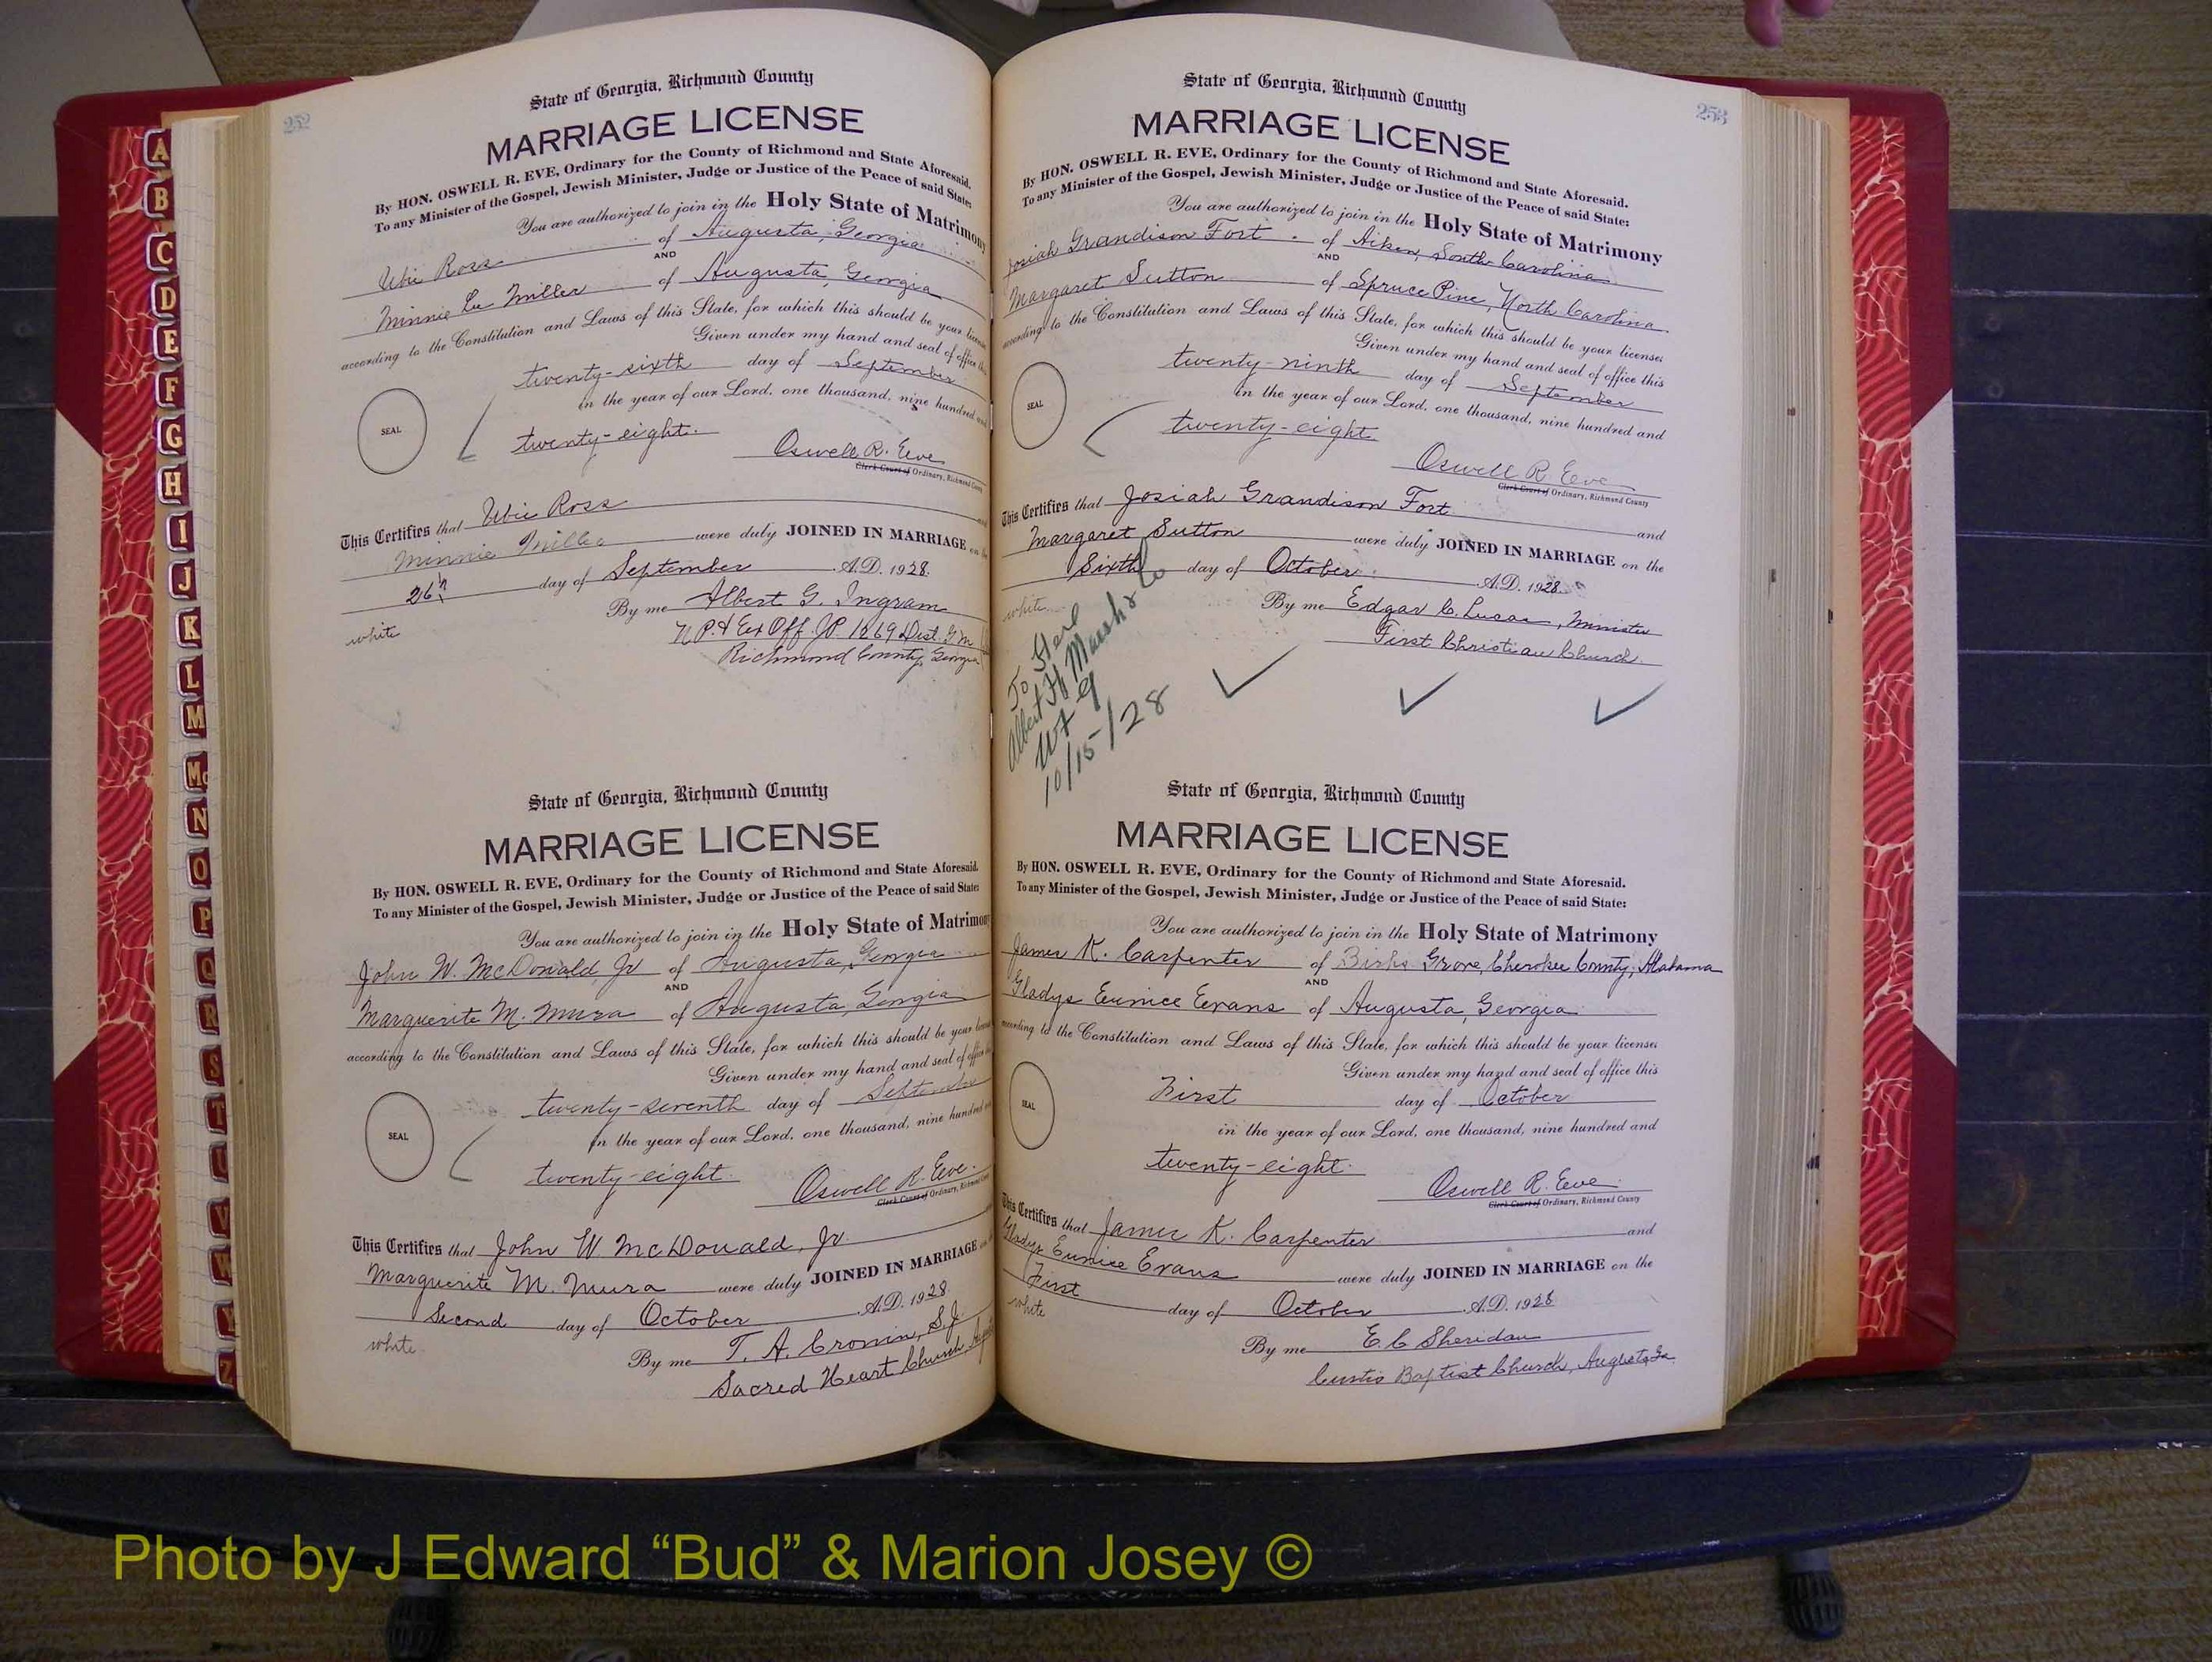 252
State of Georgia, Richmond County
MARRIAGE LICENSE
By HON. OSWELL R. EVE, Ordinary for the County of Richmond and State Aforesaid.
To any Minister of the Gospel, Jewish Minister, Judge or Justice of the Peace of said State:
You are authorized to join in the Holy State of Matrimony
Ubie Ross of Augusta, Georgia
AND
Minnie Lee Miller of Augusta, Georgia
according to the Constitution and Laws of this State, for which this should be your license
Given under my hand and seal of office this
twenty-sixth day of September
in the year of our Lord, one thousand, nine hundred and
SEAL
twenty-eight.
Oswell R. Eve
Clerk Court of Ordinary, Richmond County
This Certifies that Ubie Ross and
Minnie Miller were duly JOINED IN MARRIAGE on the
26th day of September A.D. 1928.
By me Albert G. Ingram
white N.P. & Ex Off. J.P. 1269 Dist. G.M.
Richmond County, Georgia
State of Georgia, Richmond County
MARRIAGE LICENSE
By HON. OSWELL R. EVE, Ordinary for the County of Richmond and State Aforesaid.
To any Minister of the Gospel, Jewish Minister, Judge or Justice of the Peace of said State:
You are authorized to join in the Holy State of Matrimony
John W. McDonald, Jr of Augusta, Georgia
AND
Marguerite M. Mura of Augusta, Georgia
according to the Constitution and Laws of this State, for which this should be your license
Given under my hand and seal of office this
twenty-seventh day of September
in the year of our Lord, one thousand, nine hundred and
SEAL
twenty-eight.
Oswell R. Eve.
Clerk Court of Ordinary, Richmond County
This Certifies that John W McDonald, Jr.
Marguerite M. Mura were duly JOINED IN MARRIAGE on
Second day of October A.D. 1928.
white
By me T. A. Cronin, S.J.
Sacred Heart Church,
253
State of Georgia, Richmond County
MARRIAGE LICENSE
By HON. OSWELL R. EVE, Ordinary for the County of Richmond and State Aforesaid.
To any Minister of the Gospel, Jewish Minister, Judge or Justice of the Peace of said State:
You are authorized to join in the Holy State of Matrimony
Josiah Grandison Fort of Aiken, South Carolina
AND
Margaret Sutton of Spruce Pine, North Carolina
according to the Constitution and Laws of this State, for which this should be your license:
Given under my hand and seal of office this
twenty-ninth day of September
in the year of our Lord, one thousand, nine hundred and
SEAL
twenty-eight
Oswell R. Eve
Clerk Court of Ordinary, Richmond County
This Certifies that Josiah Grandison Fort
Margaret Sutton and were duly JOINED IN MARRIAGE on the
Sixth day of October A.D. 1928.
white
By me Edgar C. Lucas, Minister
First Christian Church.
To
Albert H
10/15/28
State of Georgia, Richmond County
MARRIAGE LICENSE
By HON. OSWELL R. EVE, Ordinary for the County of Richmond and State Aforesaid.
To any Minister of the Gospel, Jewish Minister, Judge or Justice of the Peace of said State:
You are authorized to join in the Holy State of Matrimony
James K. Carpenter of Grove, Cherokee County, Alabama
AND
Gladys Eunice Evans of Augusta, Georgia
according to the Constitution and Laws of this State, for which this should be your license:
Given under my hand and seal of office this
First day of October
in the year of our Lord, one thousand, nine hundred and
SEAL
twenty-eight.
Oswell R. Eve
Clerk Court of Ordinary, Richmond County
This Certifies that James K. Carpenter and
Gladys Eunice Evans were duly JOINED IN MARRIAGE on the
First day of October A.D. 1928
white
By me E. C Sheridan
Curtis Baptist Church, Augusta, Ga
A
B
C
D
E
F
G
H
I
J
K
L
M
Mc
N
O
P
Q
R
S
T
U
V
W
Y
Z
Photo by J Edward “Bud” & Marion Josey ©